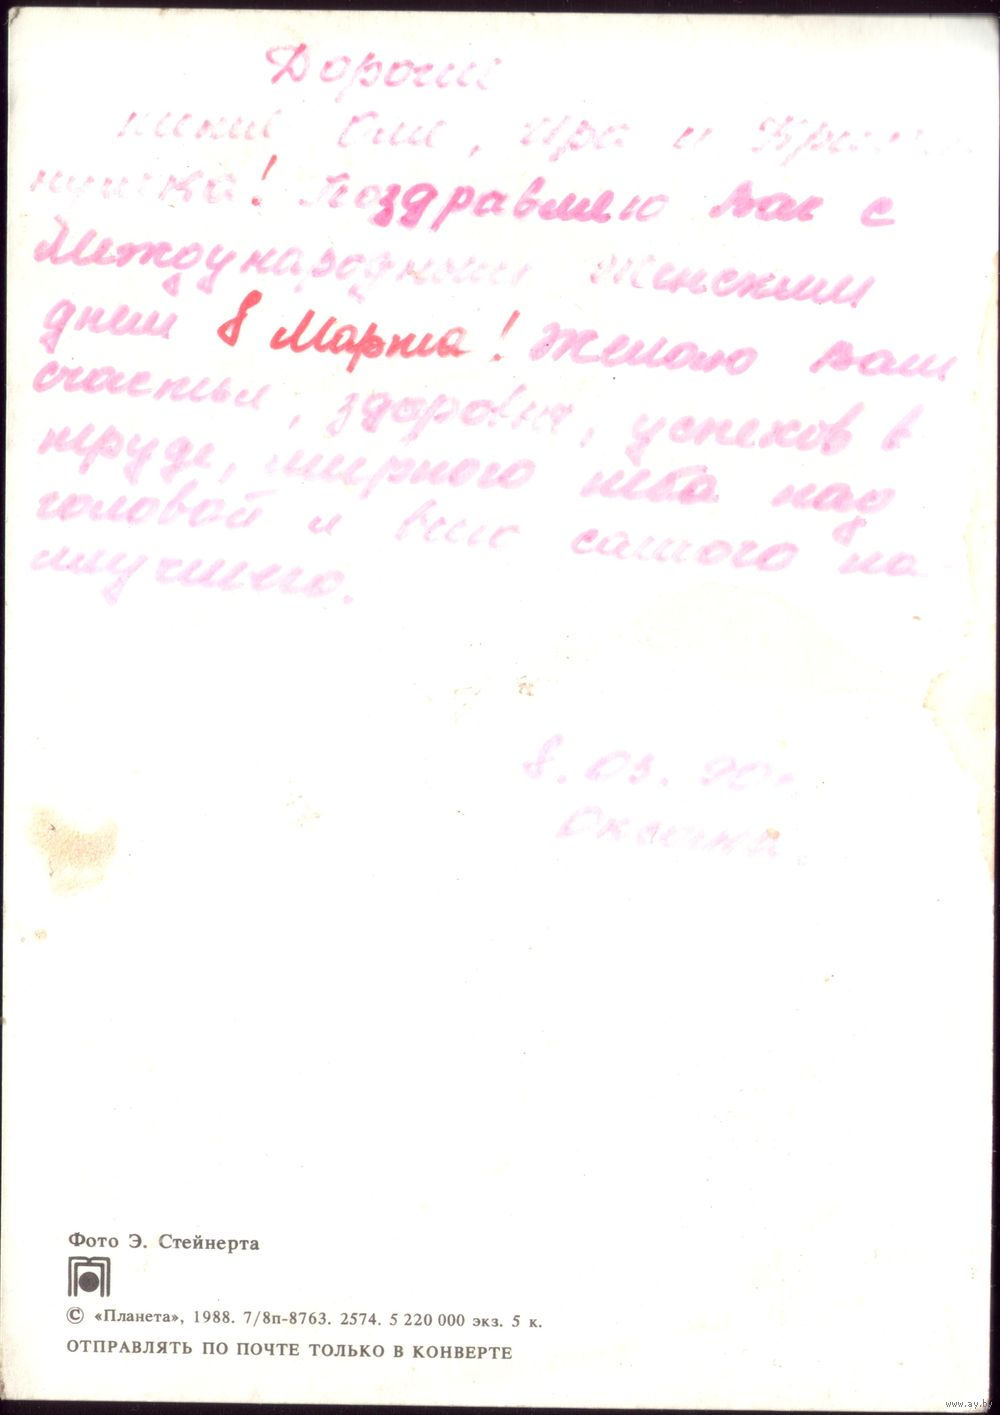 Дорогие
Оля, Ира и
Поздравляю Вас с
Международным женским
днем 8 Марта! Желаю Вам
счастья, здоровья, успехов в
труде, мирного неба над
головой и всего самого на
илучшего.
8.03.90г.
Оксана.
Фото Э. Стейнерта
© «Планета», 1988. 7/8п-8763. 2574. 5 220 000 экз. 5 к.
ОТПРАВЛЯТЬ ПО ПОЧТЕ ТОЛЬКО В КОНВЕРТЕ
www.ay.by